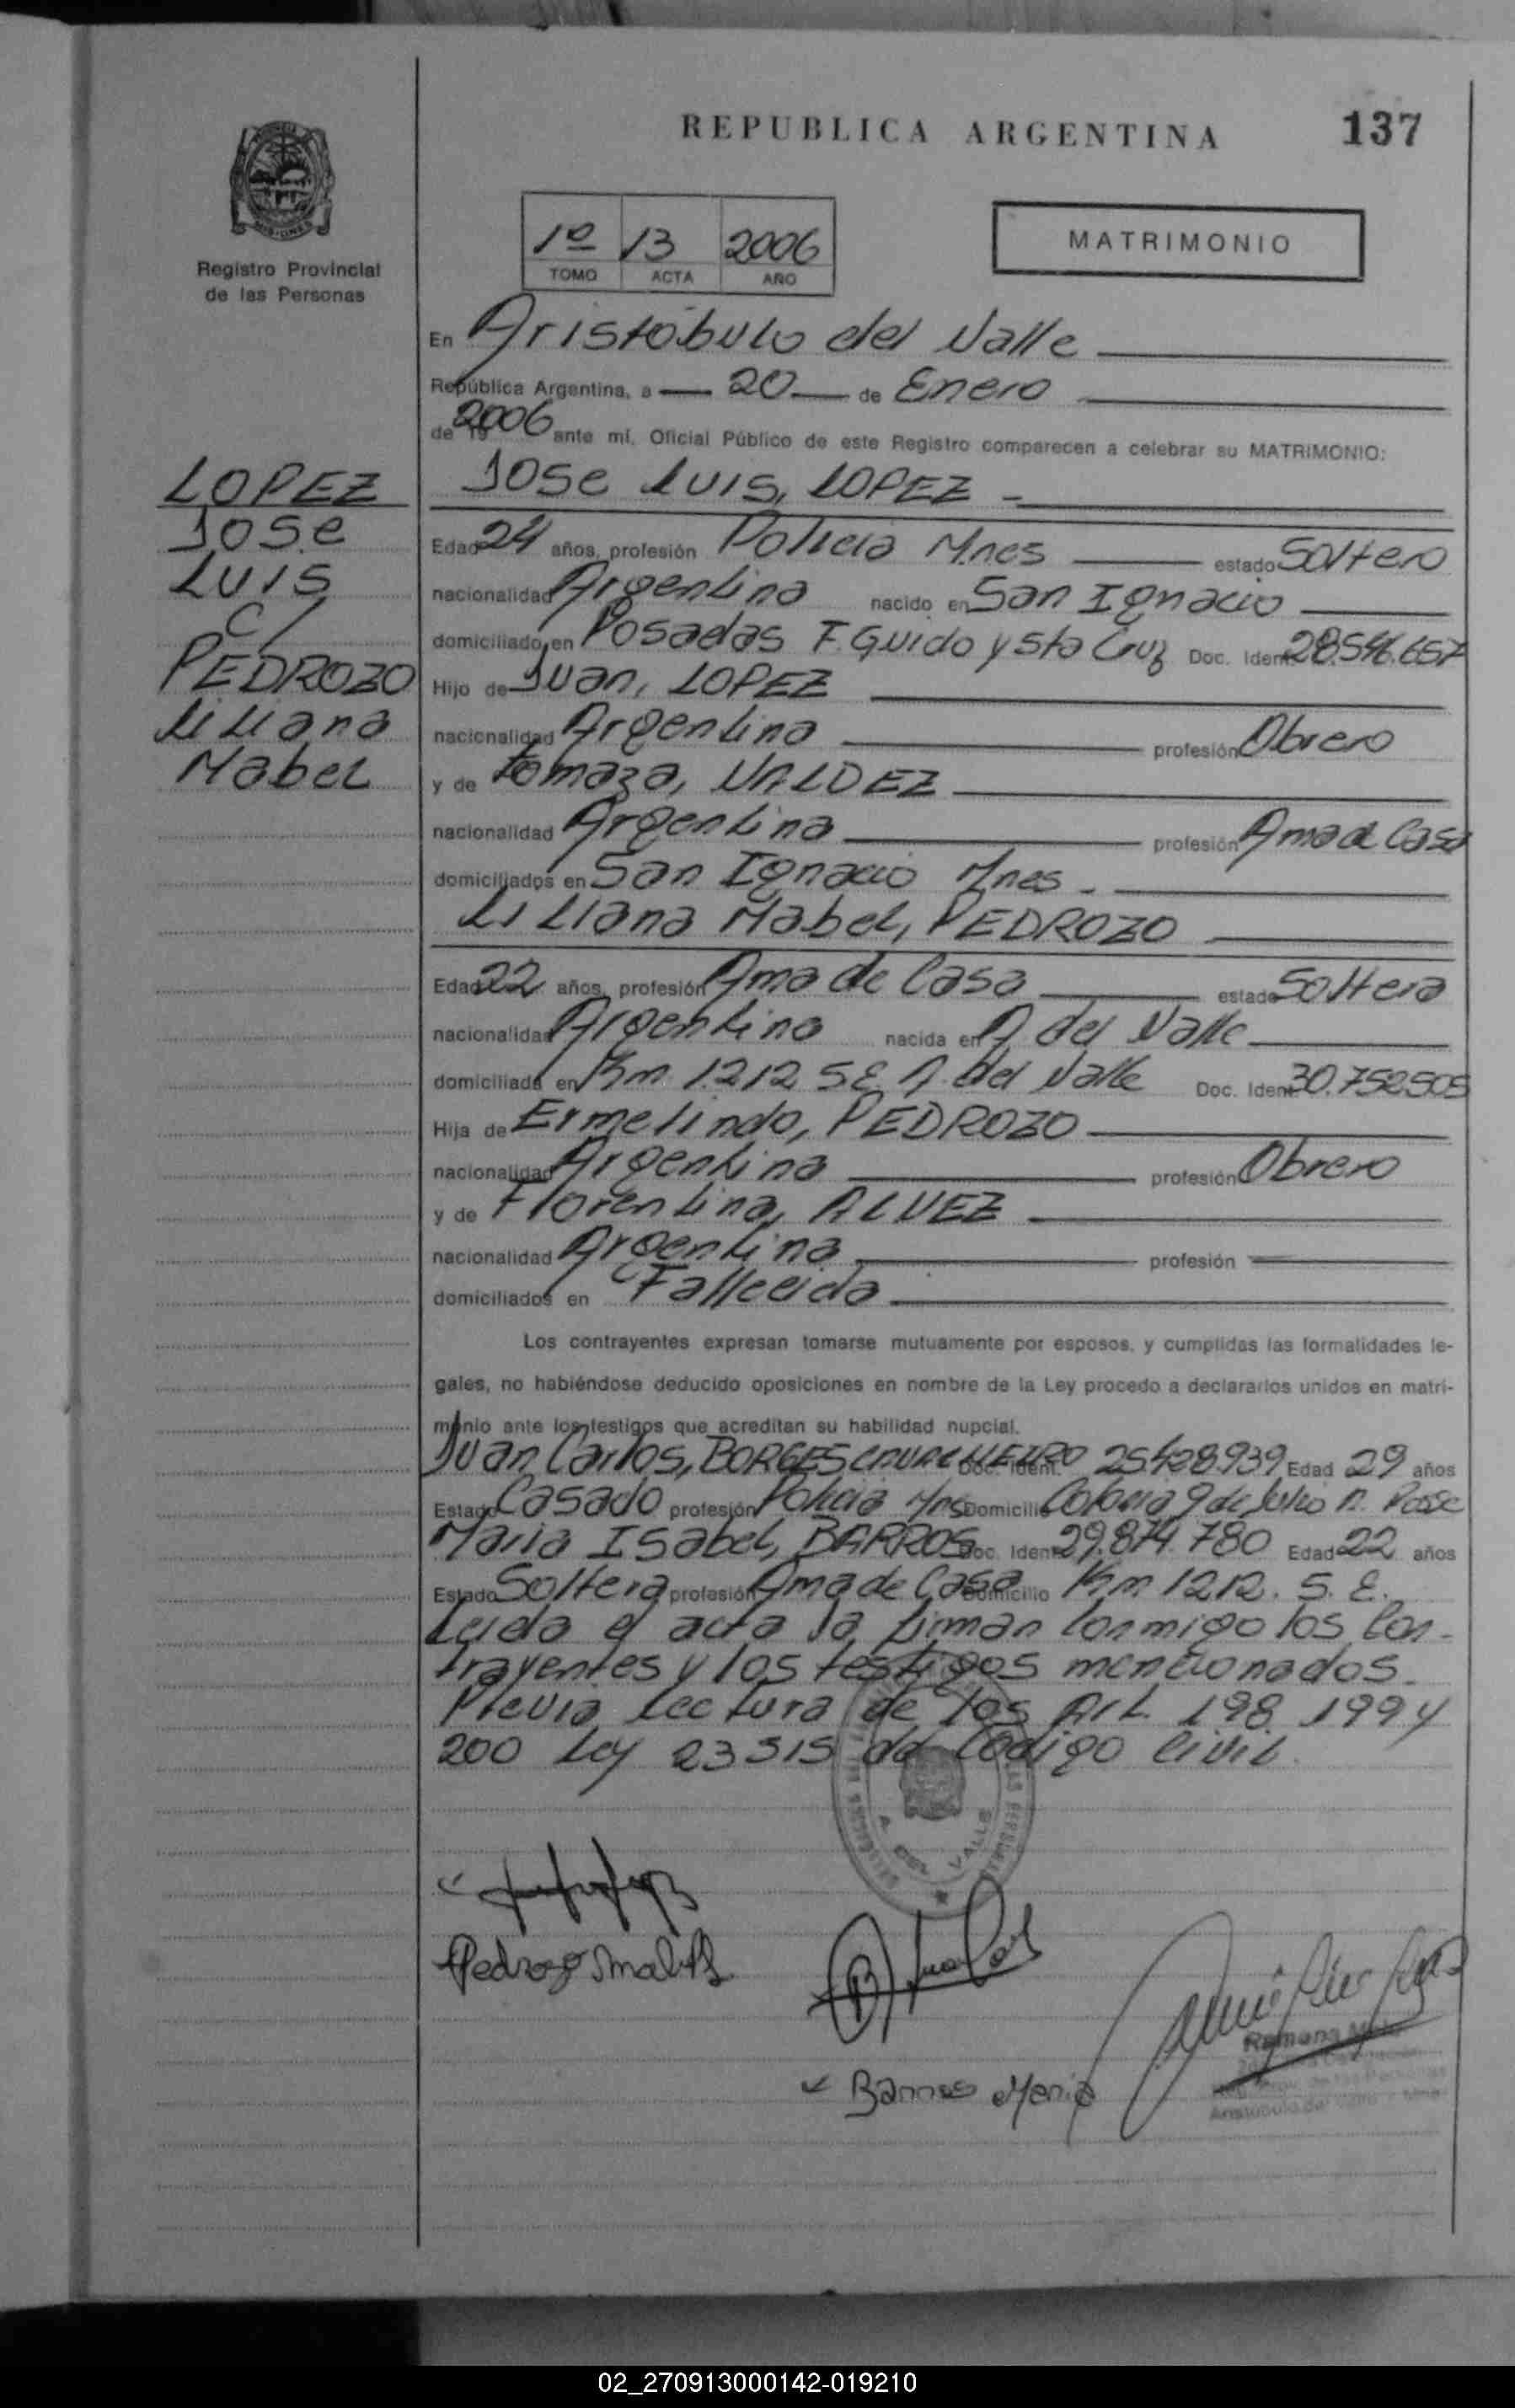 REPUBLICA ARGENTINA 137
1º 13 2006
TOMO ACTA AÑO
MATRIMONIO
MISIONES
Registro Provincial
de las Personas
En Aristóbulo del Valle
República Argentina, a 20 de Enero
de 19 2006 ante mí, Oficial Público de este Registro comparecen a celebrar su MATRIMONIO:
LOPEZ
Jose
Luis
C/
PEDROZO
Liliana
Mabel
Jose Luis, LOPEZ
Edad 24 años, profesión Policia Mnes estado Soltero
nacionalidad Argentina nacido en San Ignacio
domiciliado en Posadas F. Guido y Sta Cruz Doc. Ident. 28.546.657
Hijo de Juan, LOPEZ
nacionalidad Argentina profesión Obrero
y de Tomaza, VALDEZ
nacionalidad Argentina profesión Ama d Casa
domiciliados en San Ignacio Mnes.
Liliana Mabel, PEDROZO
Edad 22 años, profesión Ama de Casa estado Soltera
nacionalidad Argentina nacida en A del Valle
domiciliada en Km 1212 S.E. A. del Valle Doc. Ident. 30.752505
Hija de Ermelindo, PEDROZO
nacionalidad Argentina profesión Obrero
y de Florentina, ALVEZ
nacionalidad Argentina profesión
domiciliados en Fallecida
Los contrayentes expresan tomarse mutuamente por esposos, y cumplidas las formalidades le-
gales, no habiéndose deducido oposiciones en nombre de la Ley procedo a declararlos unidos en matri-
monio ante los testigos que acreditan su habilidad nupcial.
Juan Carlos, BORGES Doc. Ident. 25428.939 Edad 29 años
Estado Casado profesión Policia Mns Domicilio Colonia 9 de Julio n. Posse
Maria Isabel, BARROS Doc. Ident. 29.874.780 Edad 22 años
Estado Soltera profesión Ama de Casa Domicilio Km 1212. S. E.
Leida el acta la firman conmigo los con-
trayentes y los testigos mencionados.
Previa lectura de los Art. 198. 199 y
200 Ley 23515 del Codigo Civil.
A. DEL VALLE
Pedrozo
Barros Maria
Ramona
Aristóbulo del Valle
02_270913000142-019210